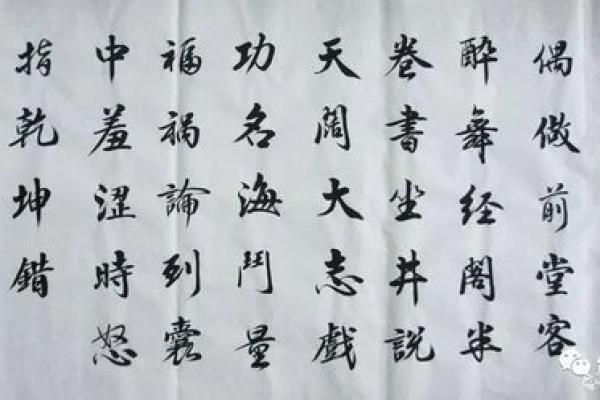 偶做前堂客
醉舞經閣半
卷書坐井說
天闊大志戲
功名海鬥量
福禍論到囊
中羞澀時怒
指乾坤錯